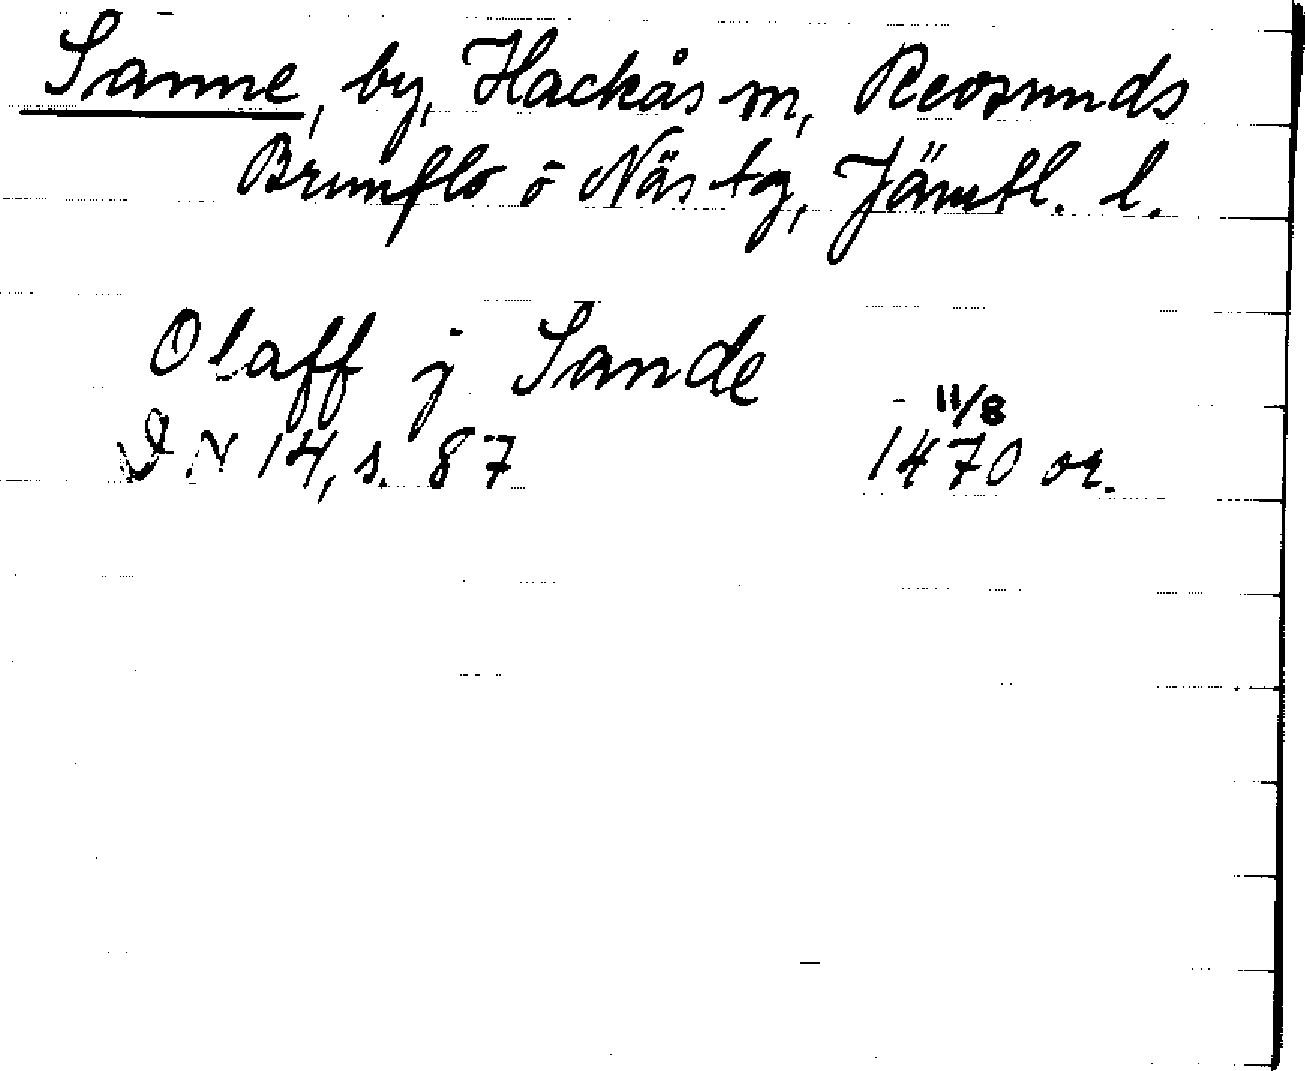 Sanne, by, Hackås sn, Revsunds
Brunflo o Näs tg, Jämtl. l.
Olaff j Sande
DN 14, s. 87
11/8
1470 or.